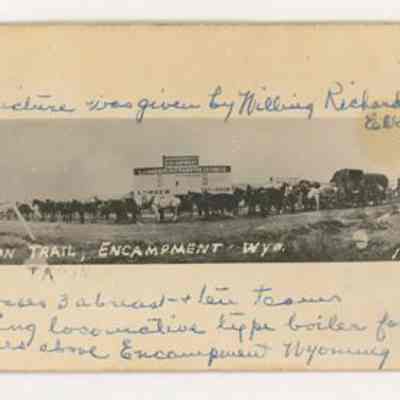 icture was given by Willing Richard
ENCAMPMENT
ON TRAIL, ENCAMPMENT WYO.
3 abreast + ten teams
ing locomotive type boiler fo
es above Encampment Wyoming